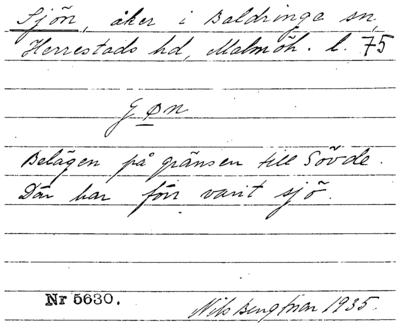 Sjön, åker i Baldringa sn,
Herrestads hd, Malmöh. l. 75
Belägen på gränsen till Sövde.
Där har förr varit sjö.
Nr 5630.
Nils Bengtson 1935.